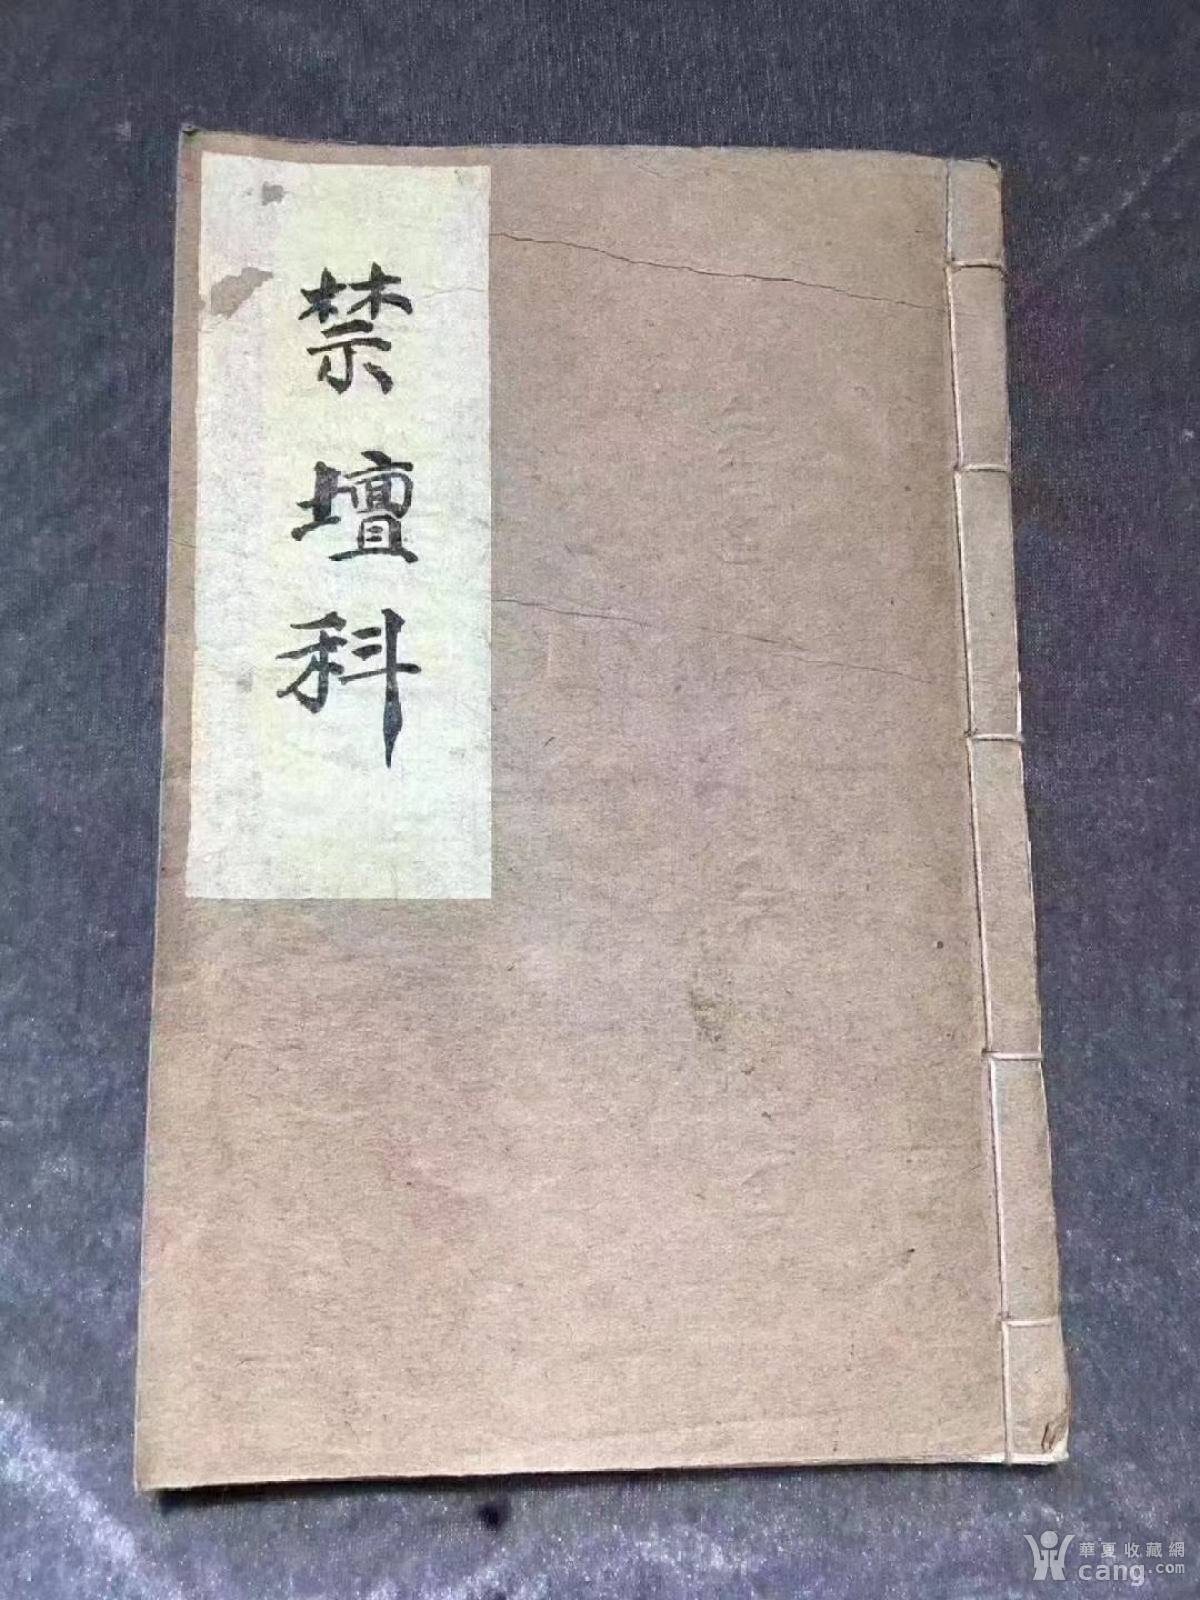 禁壇科
華夏收藏網
cang.com